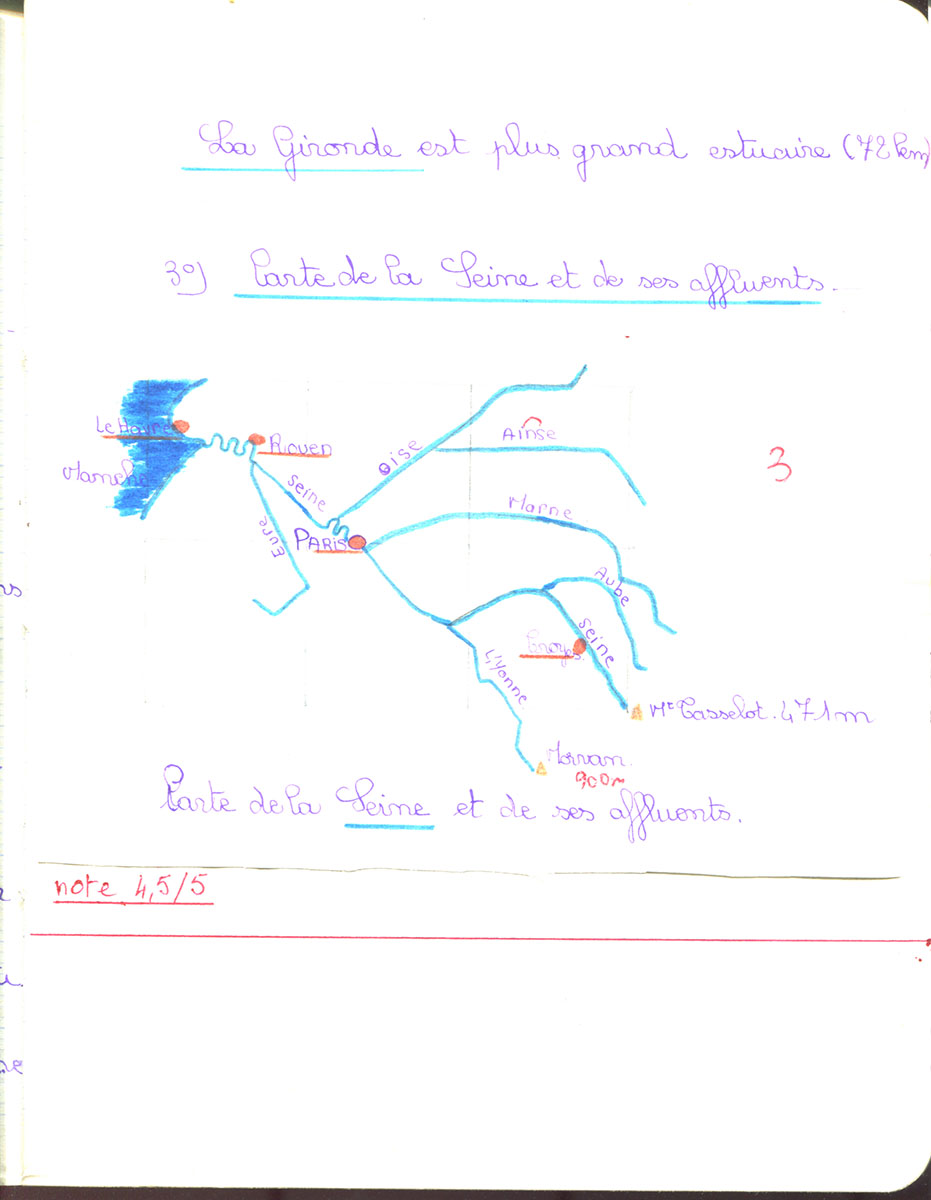 La Gironde est plus grand estuaire (72 km)
3°) Carte de la Seine et de ses affluents.
Le Havre
Rouen
Manche
Oise
Ainse
3
Seine
Marne
Eure
PARIS
Aube
Troyes
Seine
L'Yonne
Mt Tasselot. 471m
Morvan.
900m
Carte de la Seine et de ses affluents.
note 4,5/5